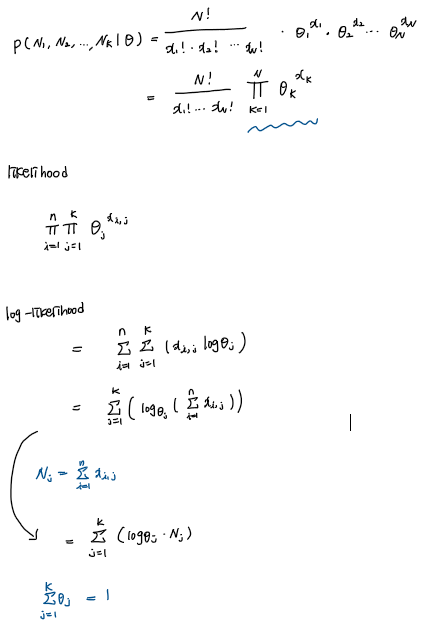 P(N₁, N₂, ..., N_K | θ) = N! / (x₁! · x₂! ··· x_N!) · θ₁^x₁ · θ₂^x₂ ··· θ_N^x_N
= N! / (x₁! ··· x_N!) ∏_{k=1}^{N} θ_k^{x_k}
likelihood
∏_{i=1}^{n} ∏_{j=1}^{K} θ_j^{x_{i,j}}
log-likelihood
= ∑_{i=1}^{n} ∑_{j=1}^{K} (x_{i,j} log θ_j)
= ∑_{j=1}^{K} (log θ_j (∑_{i=1}^{n} x_{i,j}))
N_j = ∑_{i=1}^{n} x_{i,j}
= ∑_{j=1}^{K} (log θ_j · N_j)
∑_{j=1}^{K} θ_j = 1